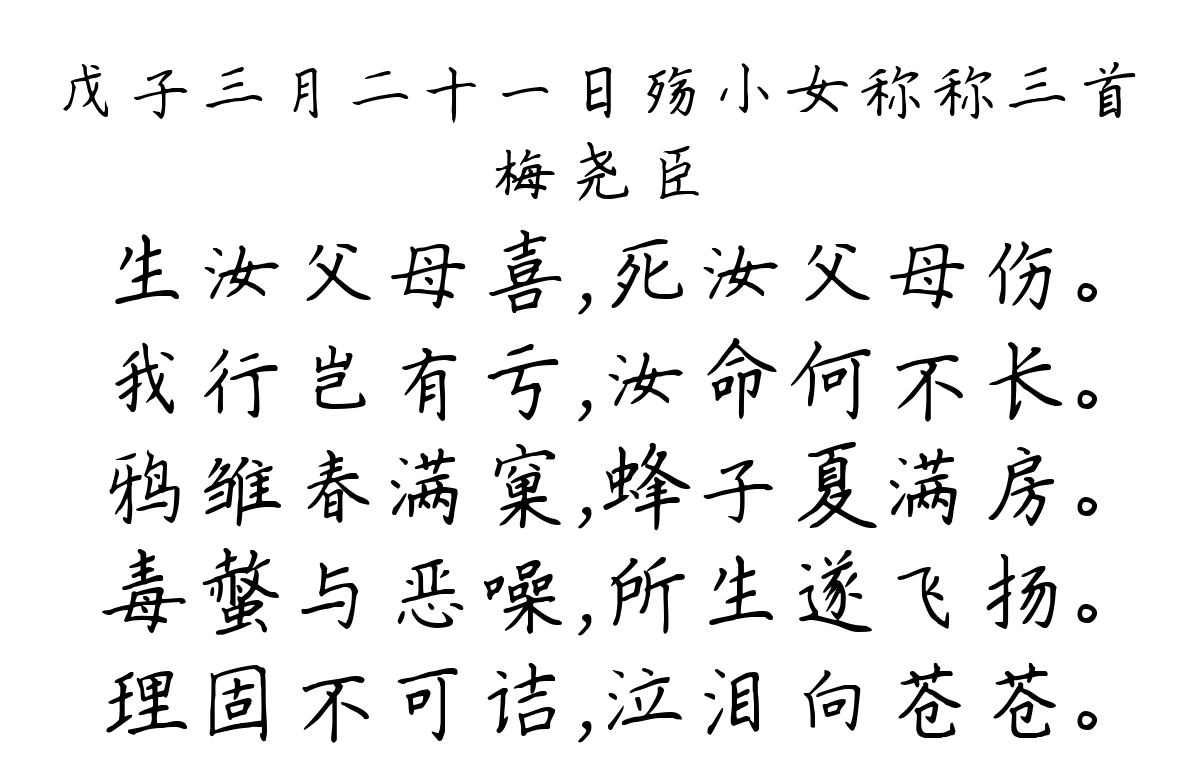 戊子三月二十一日殇小女称称三首
梅尧臣
生汝父母喜,死汝父母伤。
我行岂有亏,汝命何不长。
鸦雏春满窠,蜂子夏满房。
毒螫与恶噪,所生遂飞扬。
理固不可诘,泣泪向苍苍。